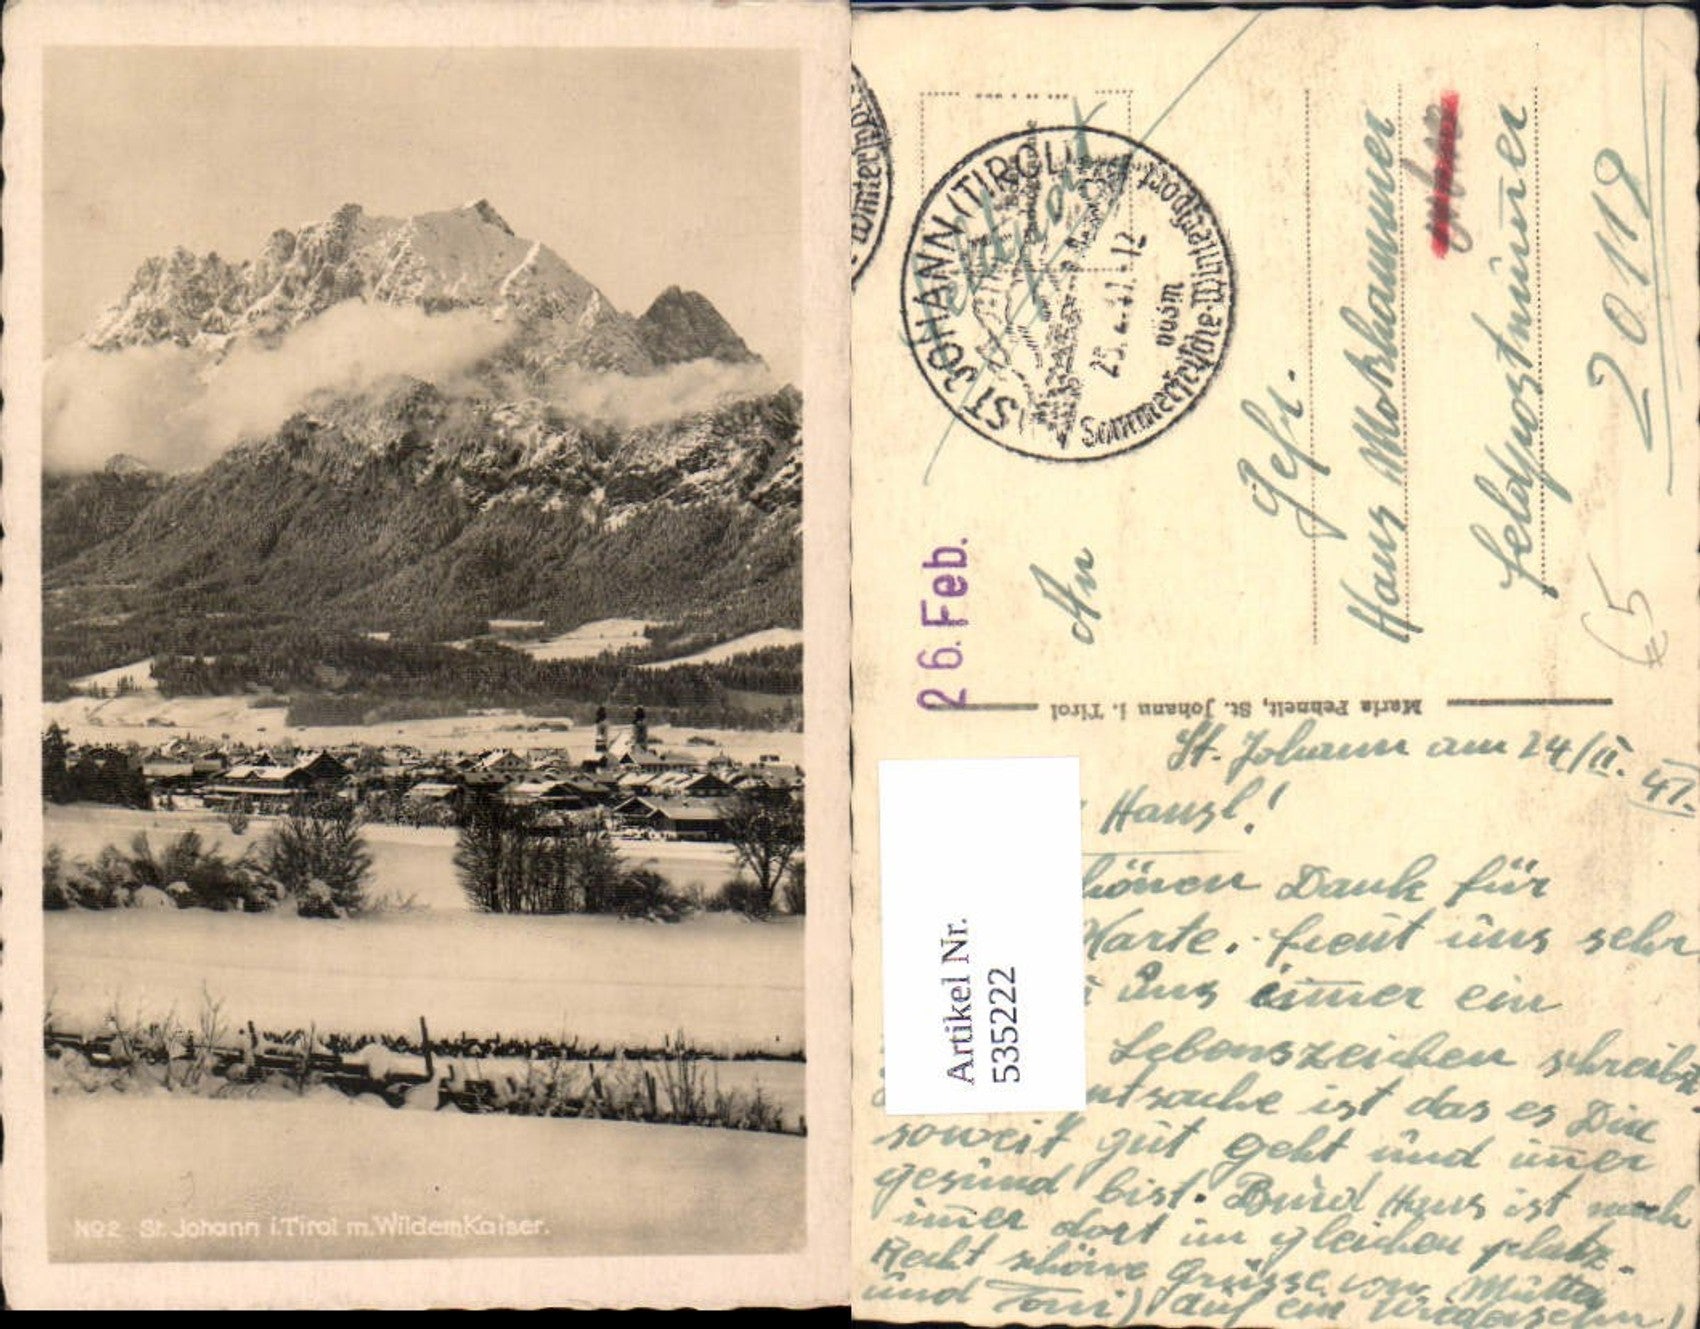 No2 St. Johann i. Tirol m. Wildem Kaiser.
ST. JOHANN (TIROL)
Sommerfrische-Wintersport
25.2.41.-12
26. Feb.
An
Gefr.
Hans
Feldpostnummer
20119
€5
Maria Pehneit, St. Johann i. Tirol
Artikel Nr.
535222
St. Johann am 24/II. 41.
Hansl!
Dank für
Karte. freut uns sehr
uns immer ein
Lebenszeichen schreibst
ist das es Dir
soweit gut geht und im̅er
gesund bist. Hans ist noch
im̅er dort im gleichen platz.
Recht schöne Grüsse von Mutter
und Toni) auf ein Wiedersehn)